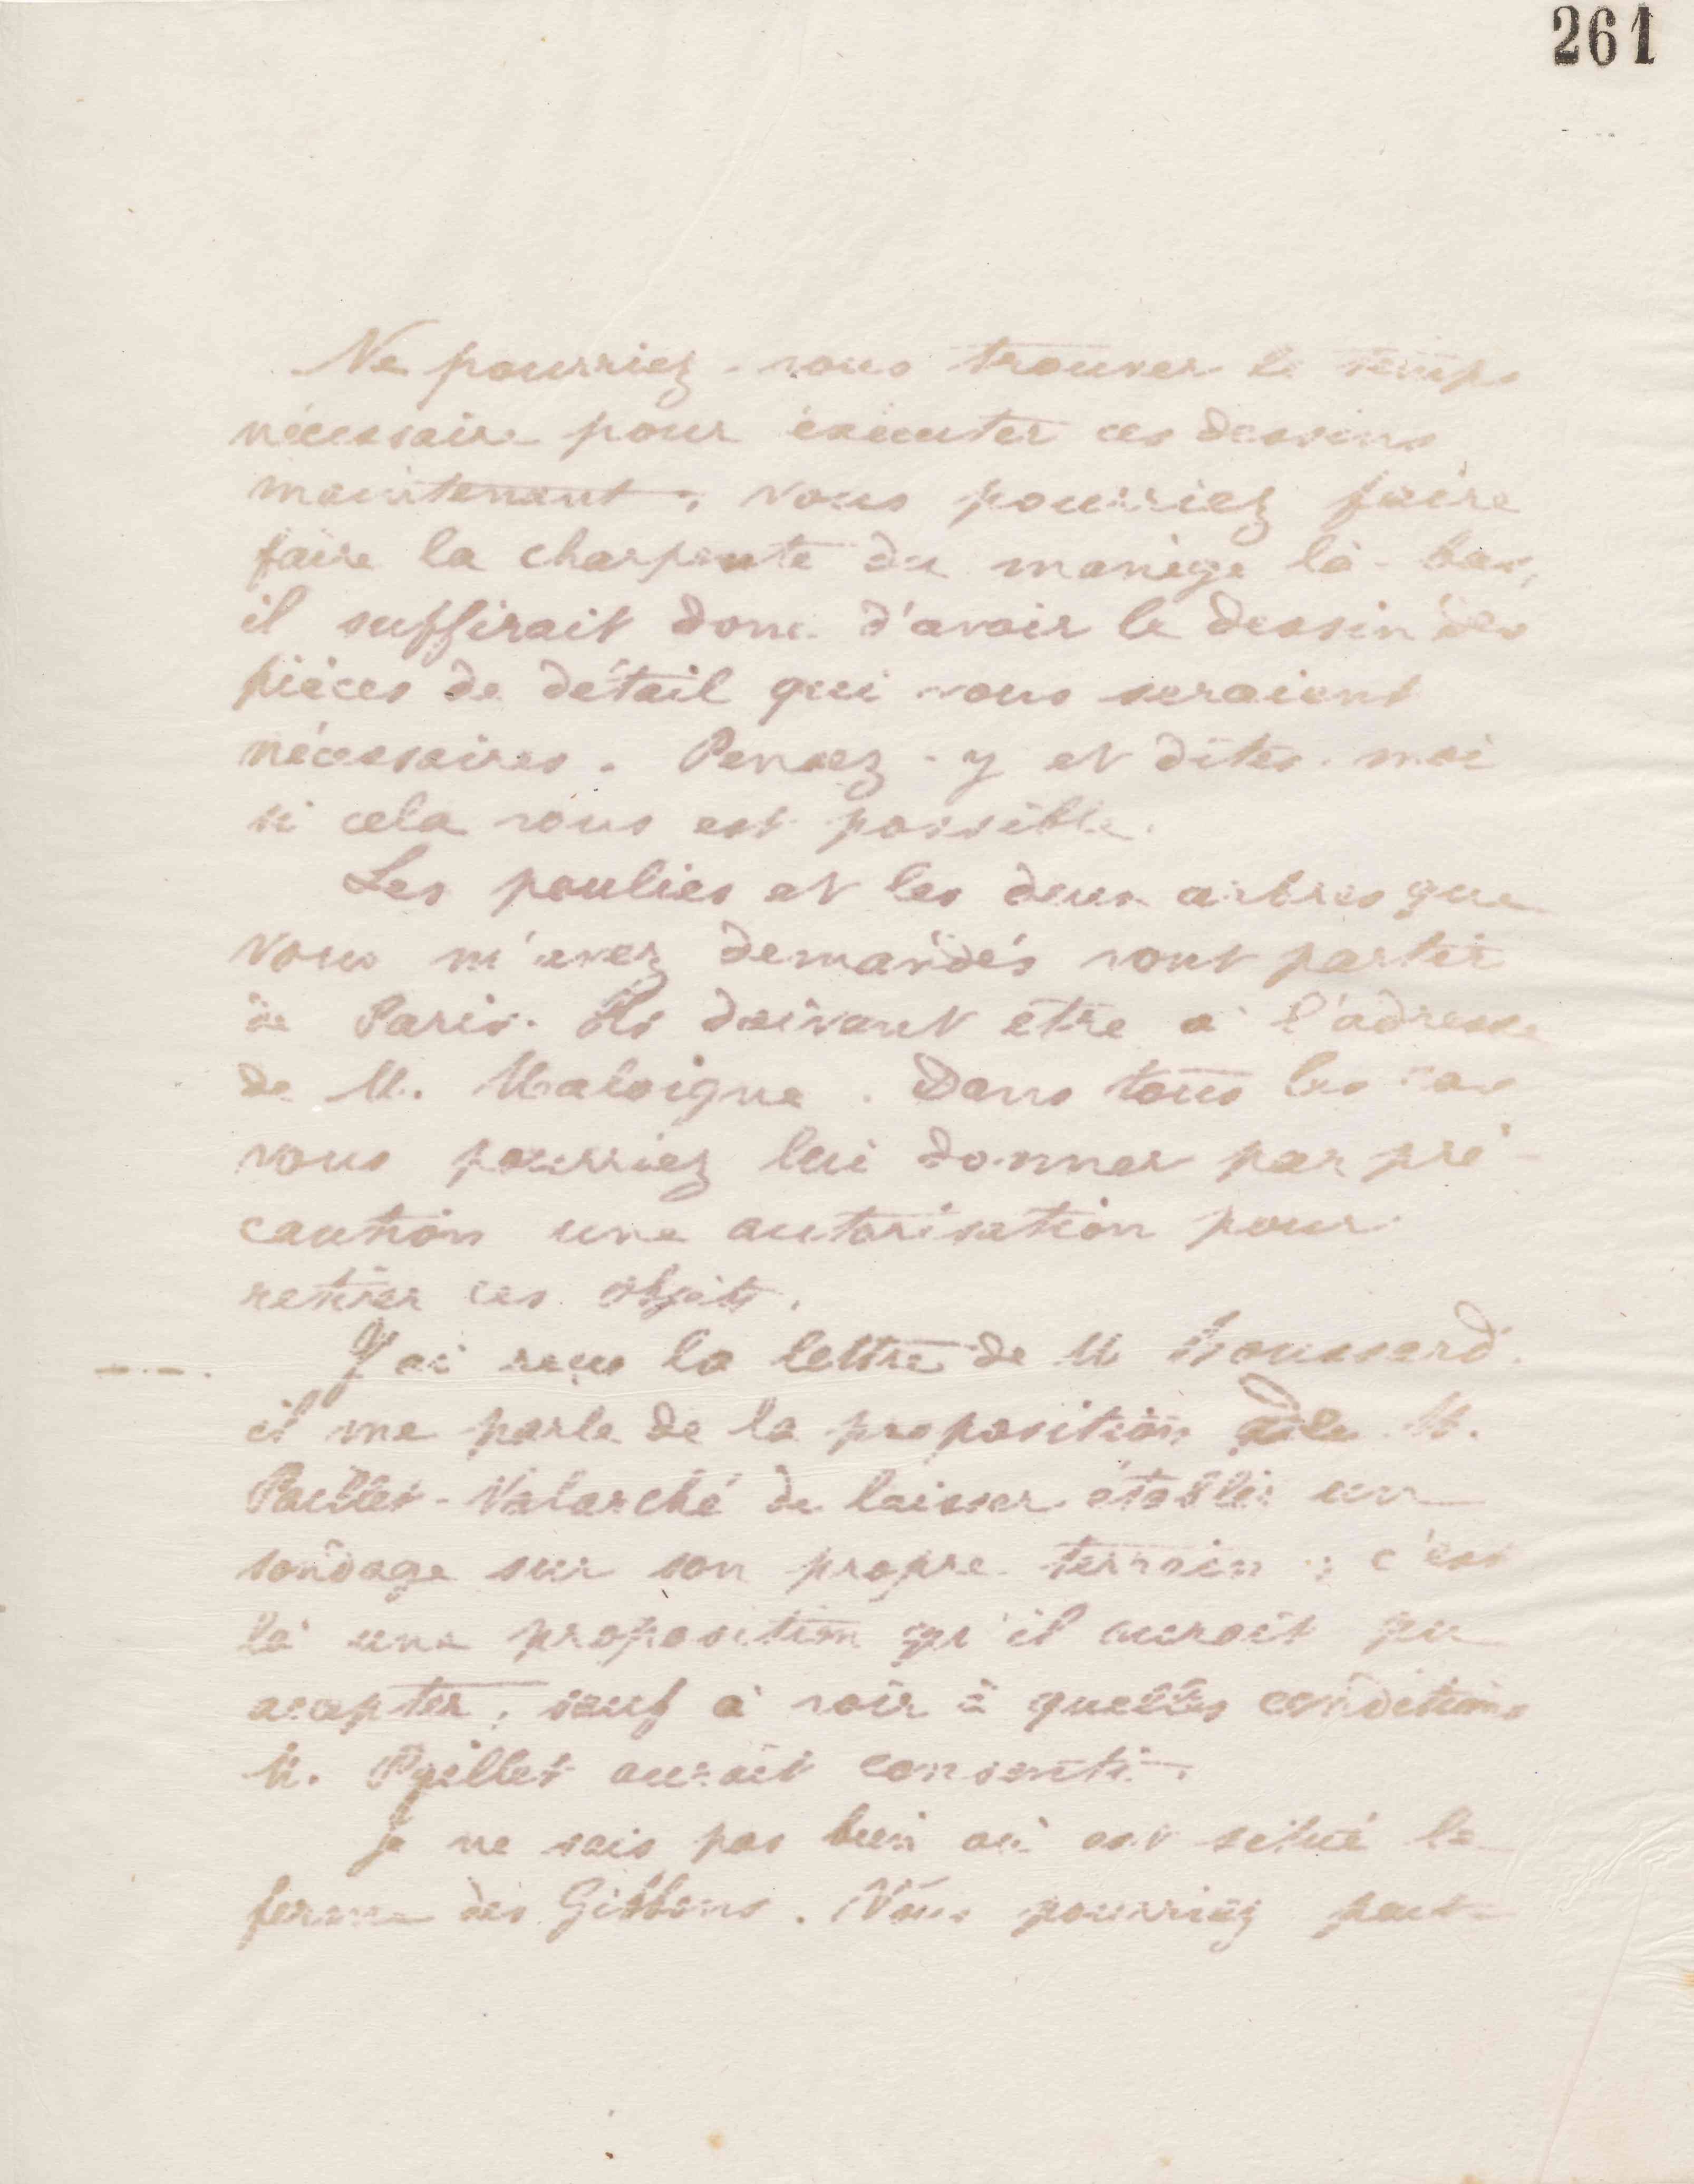 261
Ne pourriez-vous trouver le temps
nécessaire pour exécuter ces dessins
maintenant, vous pourriez faire
faire la charpente du manège là-bas,
il suffirait donc d'avoir le dessin des
pièces de détail qui vous seraient
nécessaires. Pensez-y et dites-moi
si cela vous est possible.
Les poulies et les deux arbres que
vous m'avez demandés vont partir
de Paris. Ils doivent être à l'adresse
de M. Maloigne. Dans tous les cas
vous pourriez lui donner par pré-
caution une autorisation pour
retirer ces objets.
J'ai reçu la lettre de M
il me parle de la proposition de M.
Paillet- de laisser établir un
sondage sur son propre terrain ; c'est
là une proposition qu'il aurait pu
accepter, sauf à voir à quelles conditions
M. Paillet aurait consenti.
Je ne sais pas bien où est situé la
ferme des Gibbons. Vous pourriez peut-